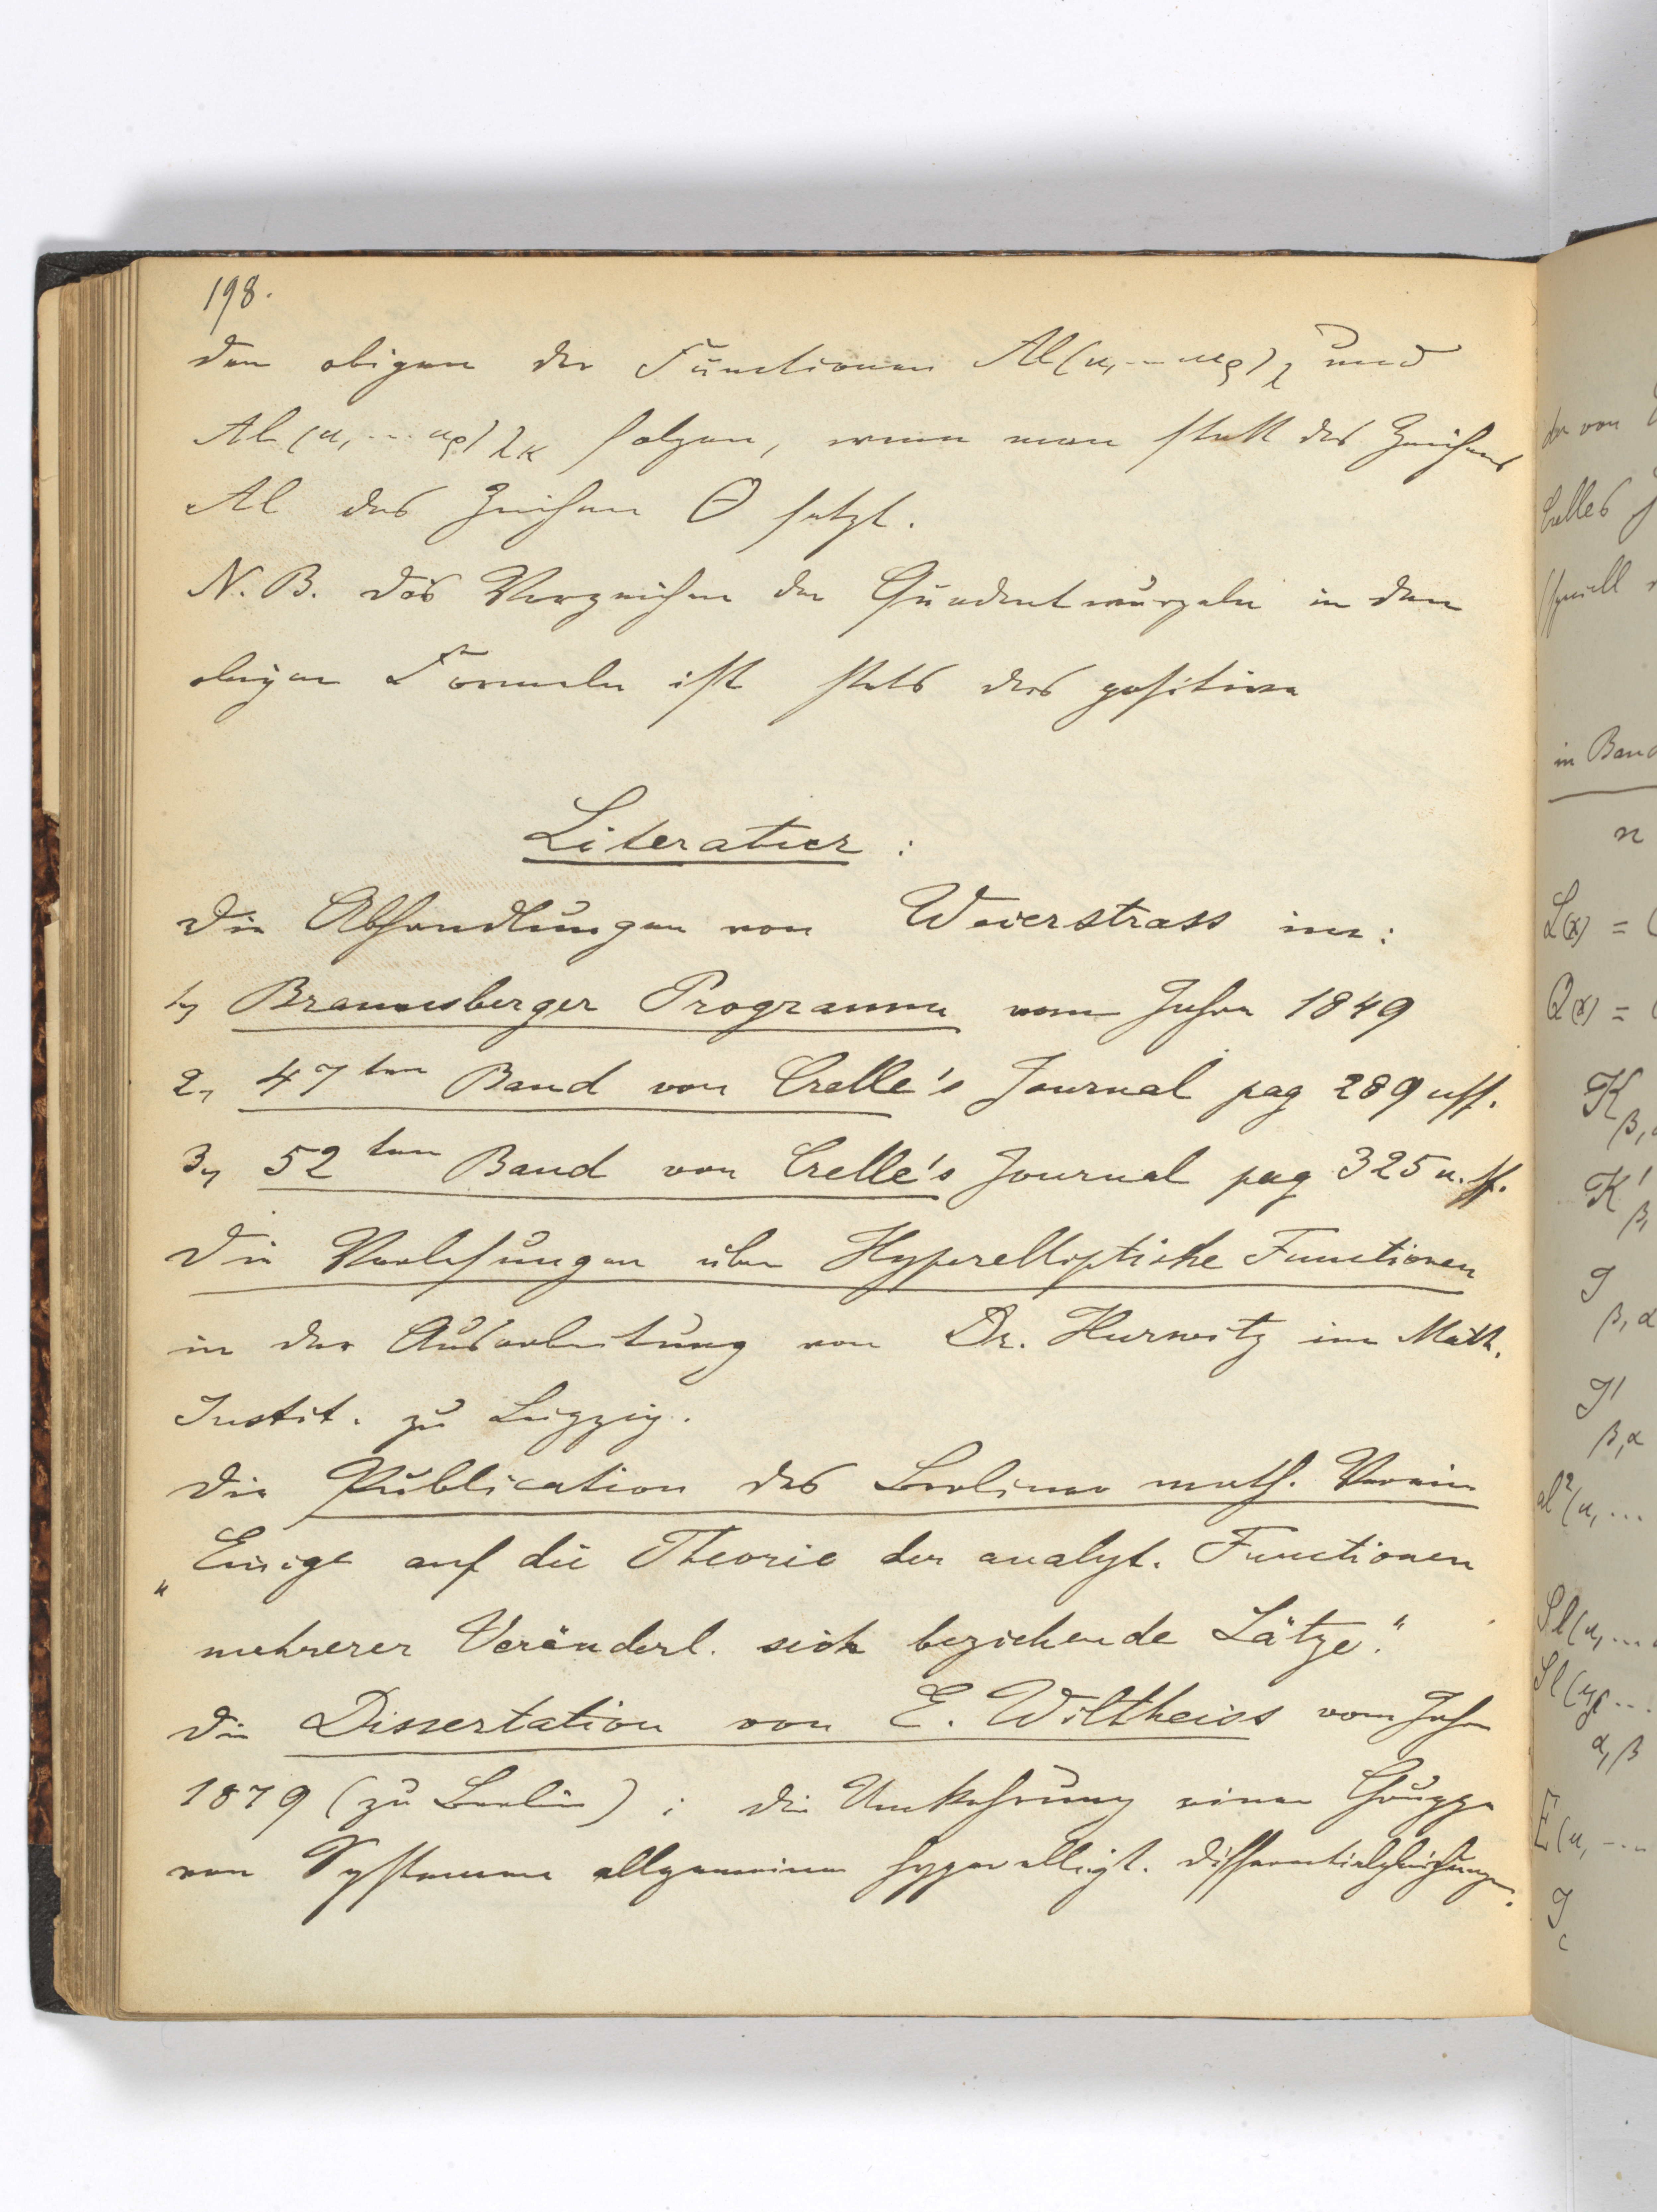 198.
den obigen der Functionen Al(u₁...uρ)λ und
Al(u₁...uρ)λκ folgen, wenn man statt des Zeichens
Al das Zeichen Θ setzt.
N.B. Das Vorzeichen der Quadratwurzeln in den
obigen Formeln ist stets das positive
Literatur :
Die Abhandlungen von Weierstrass im:
1) Braunsberger Programm vom Jahre 1849
2) 47ten Band von Crelle's Journal pag 289 uff.
3) 52ten Band von Crelle's Journal pag 325 u. ff.
Die Vorlesungen über Hyperelliptische Functionen
in der Ausarbeitung von Dr. Hurwitz im Math.
Instit. zu Leipzig.
Die Publication des Berliner math. Verein
„Einige auf die Theorie der analyt. Functionen
mehrerer Veränderl. sich beziehende Sätze."
Die Dissertation von E. Wiltheiss vom Jahre
1879 (zu Berlin) : die Umkehrung einer Gruppe
von Systemen allgemeiner hyperellipt. Differentialgleichungen.
der von
Crelles J
speciell
in Band
n
L(x) = (
Q(x) = (
K β,
K' β,
J β,α
J' β,α
al²(u₁...
α,β